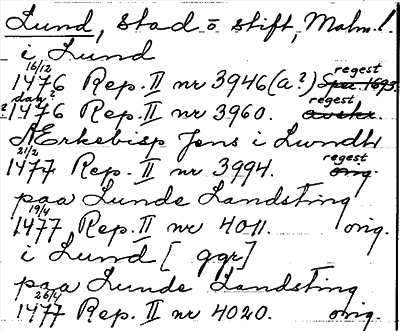 Lund, stad o stift, Malm. l.
i Lund
16/12 regest
1476 Rep. II nr 3946 (a?) Spec. 1693.
dag?
?1476 Rep. II nr 3960. regest avskr.
Ærkebisp Jens i Lundh
21/2 regest
1477 Rep. II nr 3994. orig.
paa Lunde Landsting
19/4
1477 Rep. II nr 4011. orig.
i Lund [ ggr]
paa Lunde Landsting
26/4
1477 Rep. II nr 4020. orig.